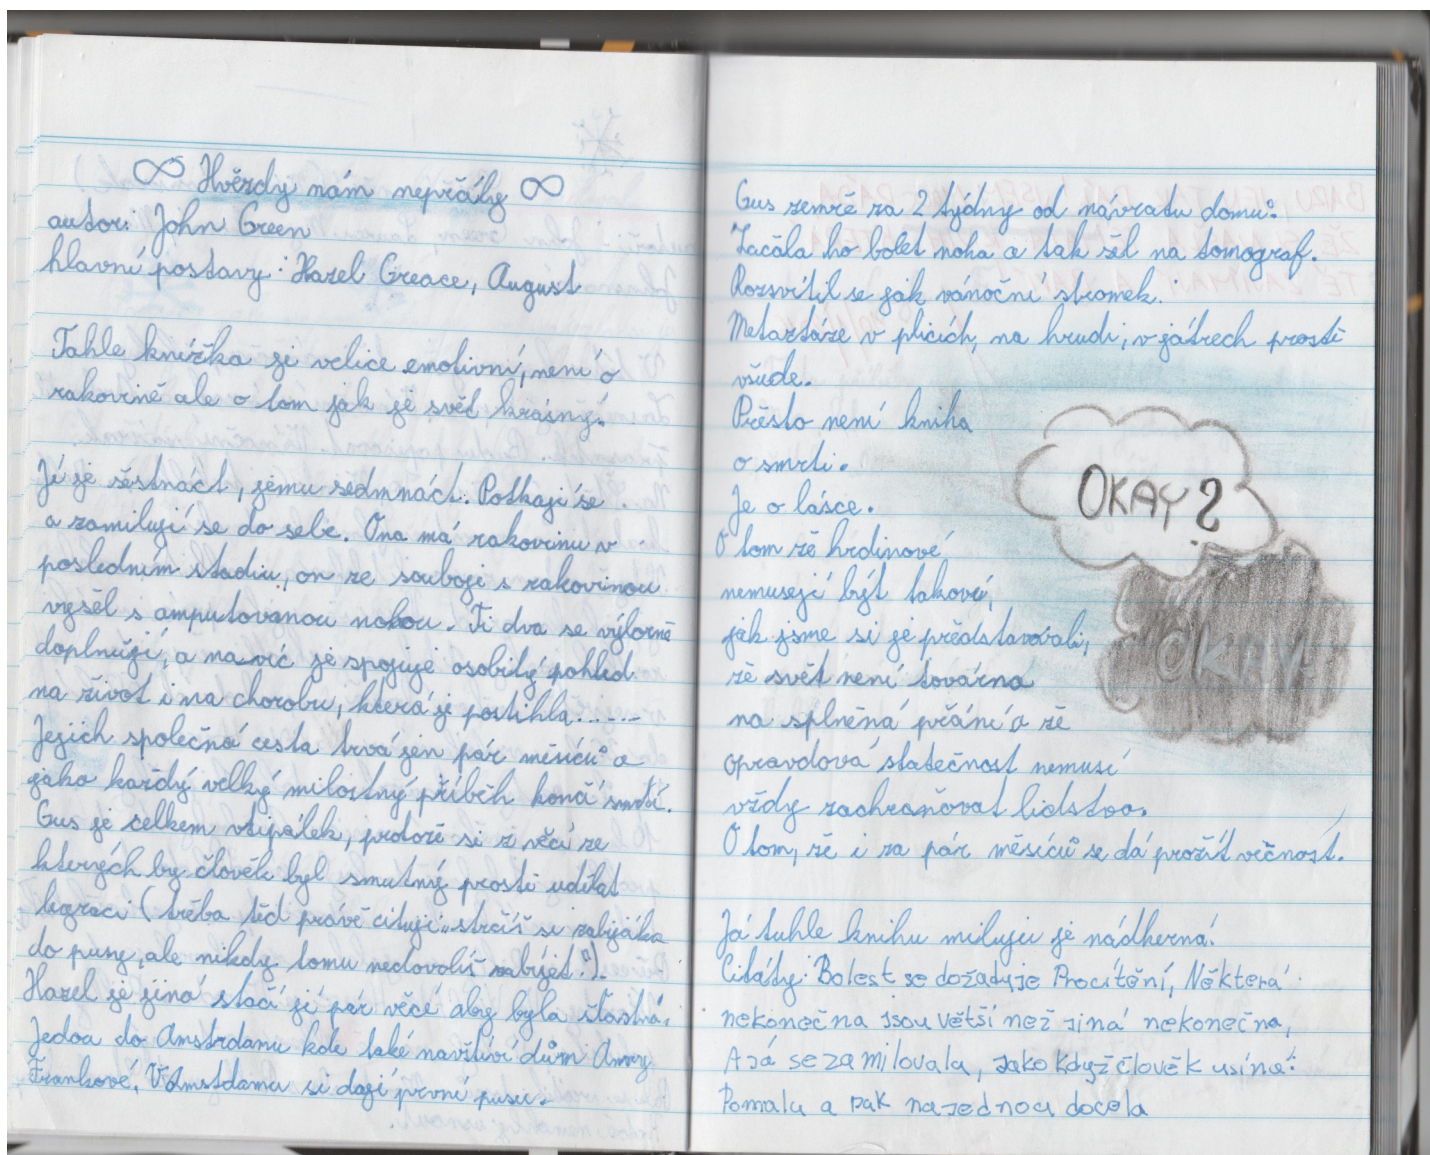 ∞ Hvězdy nám nepřály ∞
autor: John Green
hlavní postavy: Hazel Greace, August
Tahle knížka je velice emotivní, není o
rakovině ale o tom jak je svěd krásný.
Jí je šestnáct, jemu sedmnáct. Potkají se
a zamilují se do sebe. Ona má rakovinu v
posledním stadiu, on ze souboje s rakovinou
vyšel s amputovanou nohou. Ti dva se výborně
doplňují, a navíc je spojuje osobitý pohled
na život i na chorobu, která je postihla......
Jejich společná cesta trvá jen pár měsíců a
jako každý velký milostný příběh končí smrtí.
Gus je celkem vtipálek, protože si z věcí ze
kterých by člověk byl smutný prostě udělat
legraci (třeba teď právě cituji „strčíš si zabijáka
do pusy, ale nikdy tomu nedovolíš zabíjet.").
Hazel je jiná stačí jí pár věcí aby byla šťastná.
Jedoa do Amstrdamu kde také navštíví dům Anny
Frankové. V Amstdamu si dají první pusu.
Gus zemře za 2 týdny od návratu domů.
Začala ho bolet noha a tak šel na tomograf.
Rozsvítil se jak vánoční stromek.
Metastáze v plicích, na hrudi, v játrech prostě
všude.
Přesto není kniha
o smrti.
Je o lásce.
O tom že hrdinové
nemusejí být takoví,
jak jsme si je představovali,
že svět není továrna
na splněná přání a že
opravdová statečnost nemusí
vždy zachraňovat lidstvo.
O tom, že i za pár měsíců se dá prožít věčnost.
OKAY?
OKAY.
Já tuhle knihu miluju je nádherná.
Citáty: Bolest se dožaduje Procítění, Některá
nekonečna jsou větší než jiná nekonečna,
A já se zamilovala, jako když člověk usíná:
Pomalu a pak najednou docela